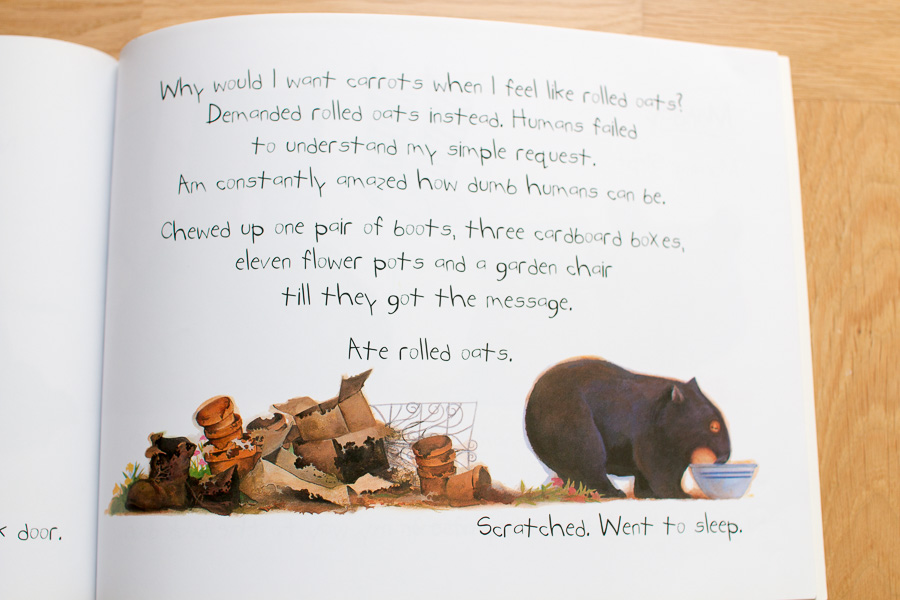 Why would I want carrots when I feel like rolled oats?
Demanded rolled oats instead. Humans failed
to understand my simple request.
Am constantly amazed how dumb humans can be.
Chewed up one pair of boots, three cardboard boxes,
eleven flower pots and a garden chair
till they got the message.
Ate rolled oats.
Scratched. Went to sleep.
door.